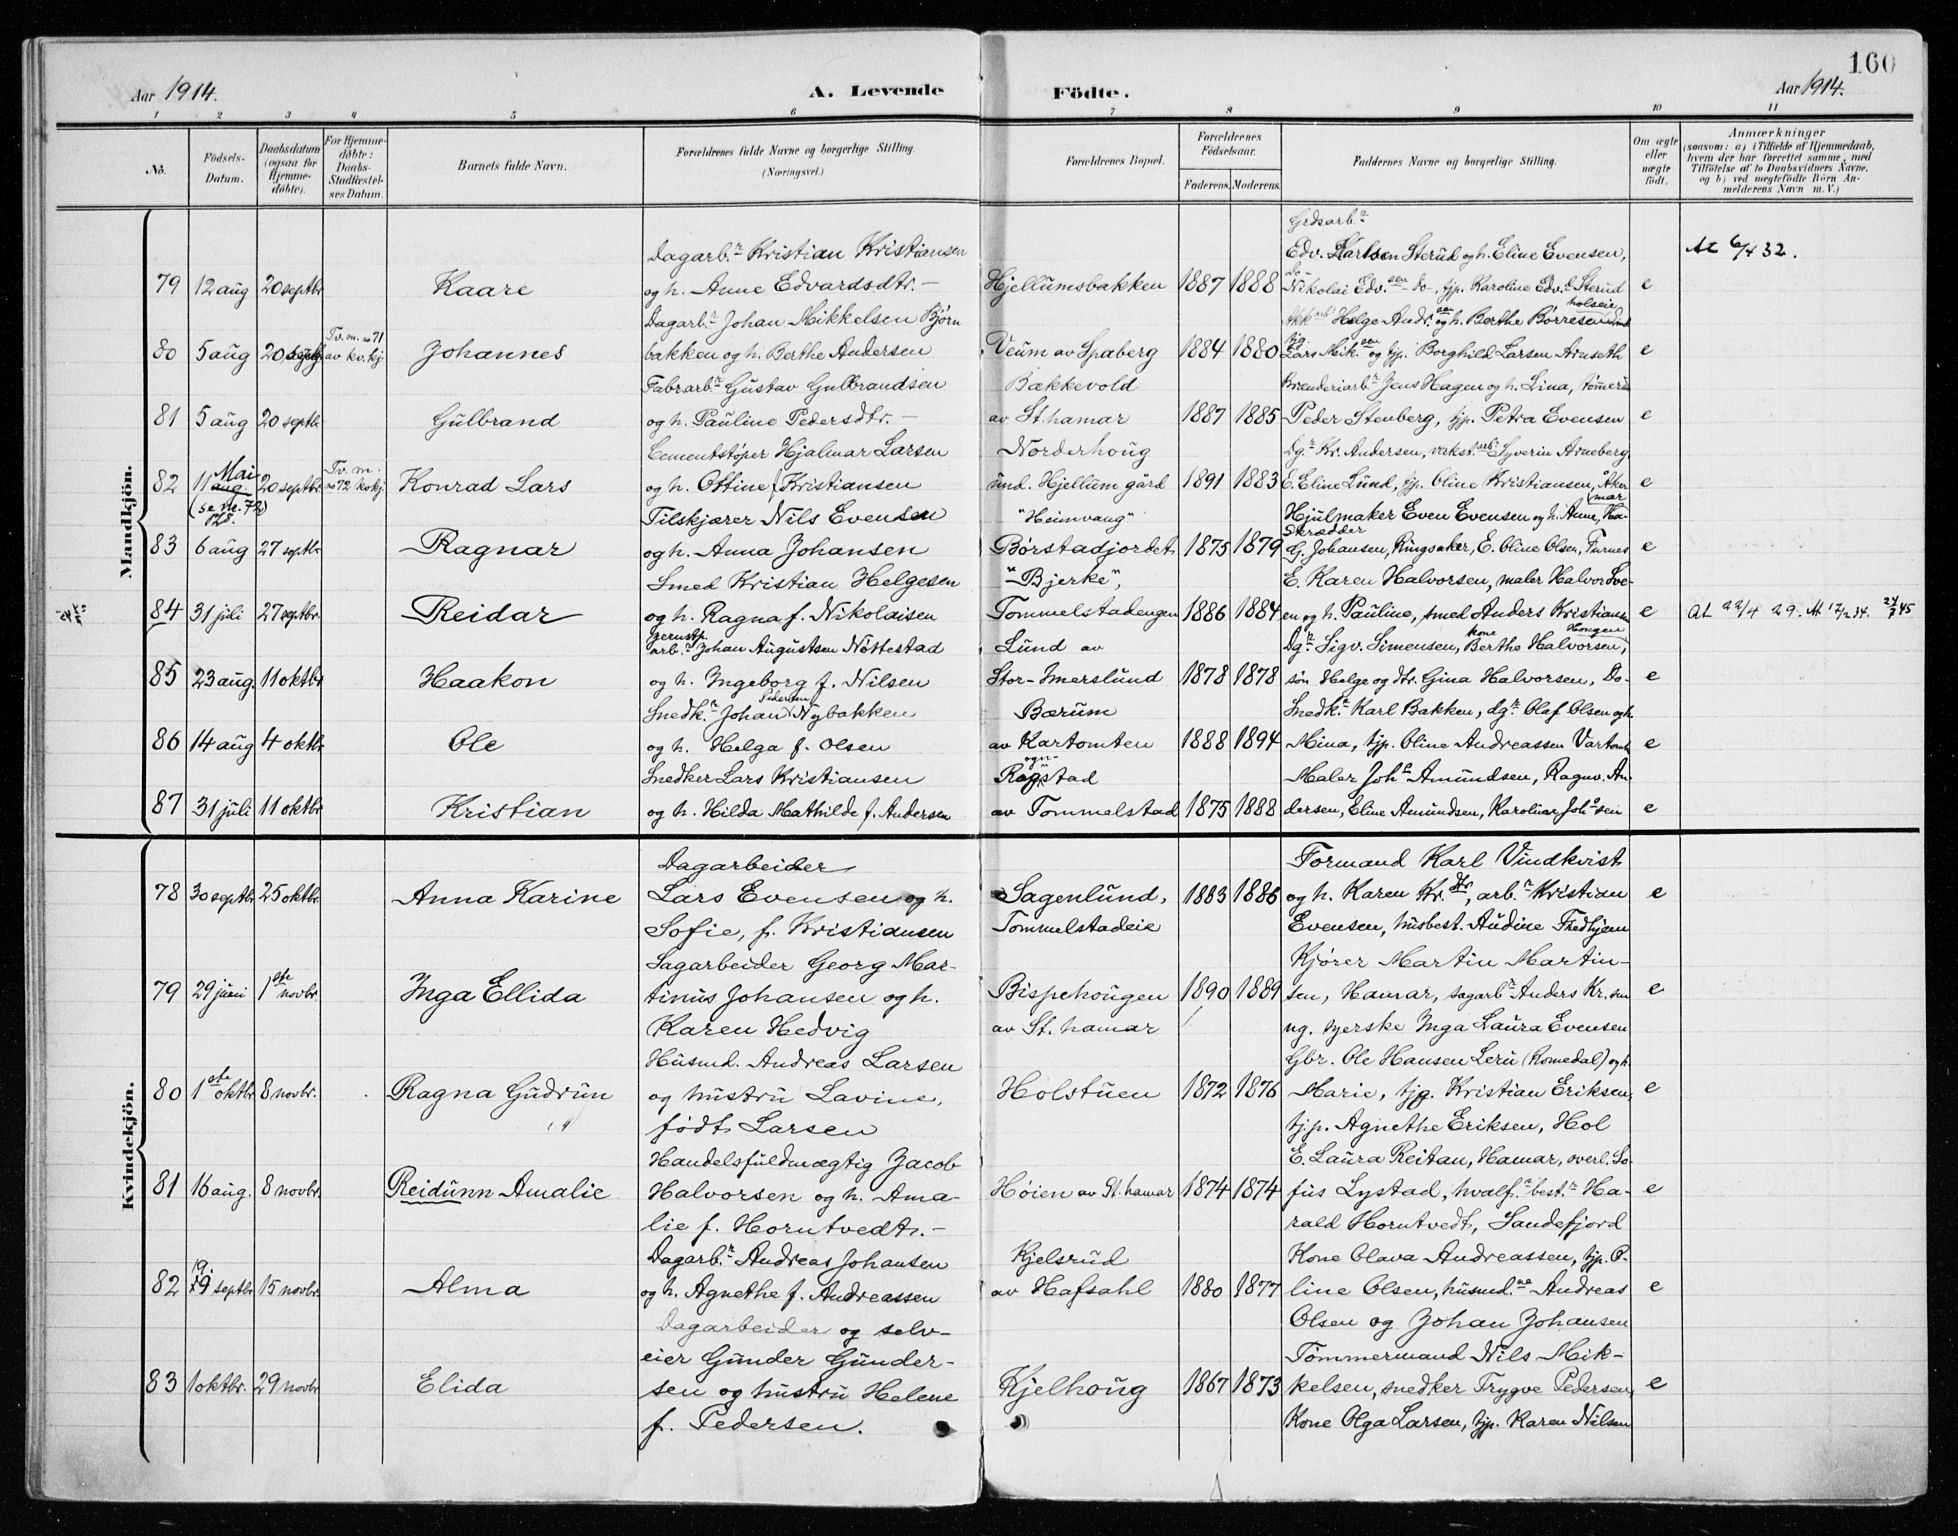 160
Aar 1914. A. Levende Födte. Aar 1914.
1 2 3 4 5 6 7 8 9 10 11
No. Födsels-Datum. Daabsdatum (ogsaa for Hjemmedöbte). For Hjemmedöbte: Daabs-Stadfæstelses Datum. Barnets fulde Navn. Forældrenes fulde Navne og borgerlige Stilling. (Næringsvei.) Forældrenes Bopæl. Forældrenes Födselsaar. Faderens. Moderens. Faddernes Navne og borgerlige Stilling. Om ægte eller uægte födt. Anmærkninger (saasom: a) i Tilfælde af Hjemmedaab, hvem der har forrettet samme, med Tilföielse af to Daabsvidners Navne, og b) ved uægtefödte Börn Anmelderens Navn m. V.)
Mandkjön.
Grdsarb.r
Dagarb.r Kristian Kristiansen Edv. Karlsen Sterud og h. Eline Evensen, At 6/4 32.
79 12 aug 20 septbr Kaare og h. Anne Edvardsdtr. – Hjellumsbakken 1887 1888 Nikolai Edv.sen do, tjp. Karoline Edv. Sterud e
Dagarb.r Johan Mikkelsen Bjørn Helge Andr. og h. Berthe Børresen
80 5 aug 20 septbr Tv. m. no 71 av kv.kj Johannes bakken og h. Berthe Andersen Veum av Spaberg 1884 1880 Lars Mik.sen og tjp. Borghild Larsen Arnseth e
Fabrarb.r Gustav Gulbrandsen Bækkevold Brænderiarb.r Jens Hagen og h. Lina, tømerm
81 5 aug 20 septbr Gulbrand og h. Pauline Pedersdtr. – av St. hamar 1887 1885 Peder Stenberg, tjp. Petra Evensen e
Cementstøper Hjalmar Larsen Norderhoug Dg.r Kr. Andersen, vækst.arb. Syverin Arneberg
82 11 aug. Mai (se nr. 72) 20 septbr Tv. m. no 72 kv.kj. Konrad Lars og h. Ottine f Kristiansen und. Hjellum gård 1891 1883 E. Eline Lund, tjp. Oline Kristiansen, Åker e
Tilskjærer Nils Evensen "Heimvang" Hjulmaker Even Evensen og h. Anne, Hamar
83 6 aug 27 septbr Ragnar og h. Anna Johansen Børstadjordet 1875 1879 Skrædder G. Johansen, Ringsaker, E. Oline Olsen, Furnes e
Smed Kristian Helgesen "Bjerke", E. Karen Halvorsen, maler Halvor Sve-
84 31 juli 27 septbr Reidar og h. Ragna f. Nikolaisen Tommelstadengen 1886 1884 en og h. Pauline, smed Anders Kristiansen e At 22/4 29. At 12/2 34. 24/7 45
arb.r Johan Augustsen Nøttestad Lund av Dg.r Sigv. Simensen, kone Berthe Halvorsen, Hongen
85 23 aug. 11 oktbr Haakon og h. Ingeborg f. Nilsen Stor-Imerslund 1878 1878 søn Helge og dtr. Gina Halvorsen, Do- e
Snedk.r Johan Pedersen Nybakken Bærum Snedk.r Karl Bakken, dg.r Olaf Olsen og h.
86 14 aug 4 oktbr Ole og h. Helga f. Olsen av Kartomten 1888 1894 Mina, tjp. Oline Andreassen Vartomt e
Snedker Lars Kristiansen Rognstad Maler Joh.s Amundsen, Ragnv. An-
87 31 juli 11 oktbr Kristian og h. Hilda Mathilde f. Andersen av Tommelstad 1875 1888 dersen, Eline Amundsen, Karoline Joh.sen e
Kvindekjön.
Dagarbeider Formand Karl Vindkvist
78 30 septbr 25 oktbr Anna Karine Lars Evensen og h. Sagenlund, 1883 1886 og h. Karen Kr.dtr, arb.r Kristian e
Sofie, f. Kristiansen Tommelstadeie Evensen, husbest. Audine Fredhjem
Sagarbeider Georg Mar- Kjører Martin Martin-
79 29 juni 1ste novbr. Inga Ellida tinus Johansen og h. Bispehougen 1890 1889 sen, Hamar, sagarb.r Anders Kr.sen e
Karen Hedvig av St. hamar ng. syerske Inga Laura Evensen
Husmd. Andreas Larsen Gbr. Ole Hansen Leru (Romedal) og h.
80 1ste oktbr 8 novbr. Ragna Gudrun og hustru Lavine, Holstuen 1872 1876 Marie, tjg. Kristian Eriksen, e
født Larsen tjp. Agnethe Eriksen, Hol
Handelsfuldmægtig Jacob E. Laura Reitan, Hamar, overl. So-
81 16 aug. 8 novbr. Reidunn Amalie Halvorsen og h. Ama- Høien av St. hamar 1874 1874 fus Lystad, hvalf. best.r Ha- e
lie f. Horntvedt. – rald Horntvedt, Sandefjord
Dagarb.r Andreas Johansen Kjelsrud Kone Olava Andreassen, tjp. P-
82 19 septbr 15 novbr. Alma og h. Agnethe f. Andreassen av Hafsahl 1880 1877 line Olsen, husmd.ne Andreas e
Dagarbeider og selv- Olsen og Johan Johansen
eier Gunder Gunder- Tømmermand Nils Mik-
83 1 oktbr. 29 novbr Elida sen og hustru Helene Kjelhoug 1867 1873 kelsen, snedker Trygve Pedersen e
f. Pedersen. Kone Olga Larsen, tjp. Karen Nilsen